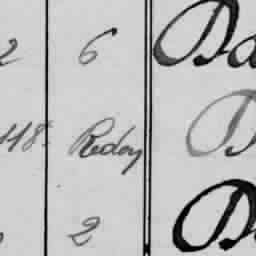 2 6 Da
118. Redon B
2 D